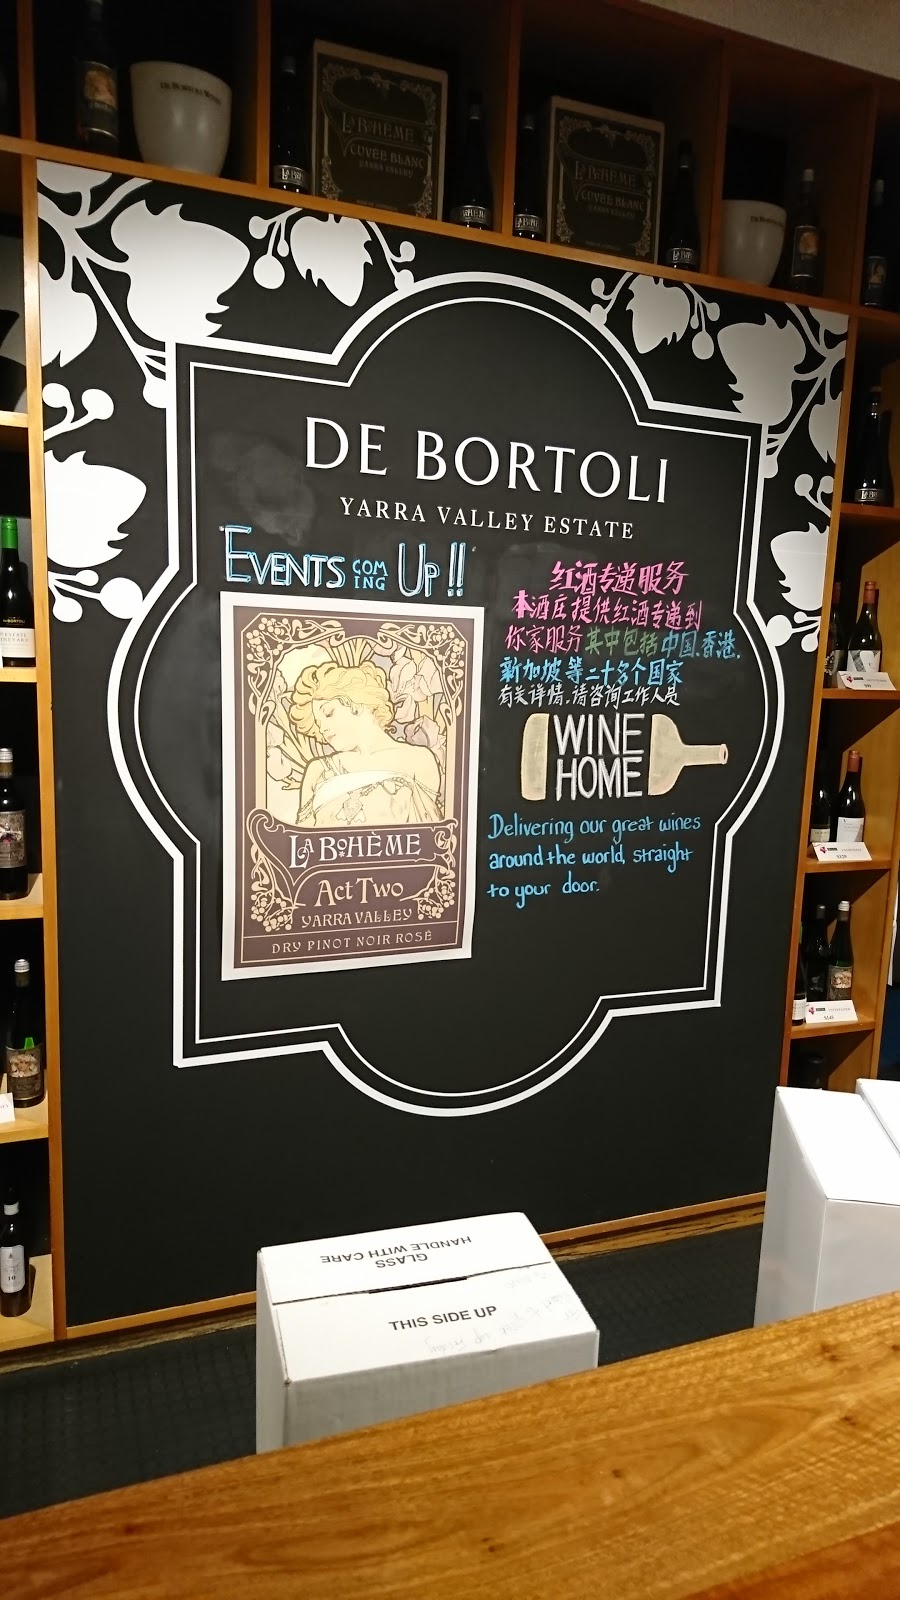 DE BORTOLI
LA BOHÈME
CUVÉE BLANC
YARRA VALLEY
LA BOHÈME
CUVÉE BLANC
YARRA VALLEY
DE BORTOLI
YARRA VALLEY ESTATE
EVENTS COMING UP!!
红酒专递服务
本酒庄提供红酒专递到
你家服务其中包括中国.香港.
新加坡等二十多个国家
有关详情.请咨询工作人员
WINE
HOME
Delivering our great wines
around the world, straight
to your door.
LA BOHÈME
ACT TWO
YARRA VALLEY
DRY PINOT NOIR ROSÉ
GLASS
HANDLE WITH CARE
THIS SIDE UP